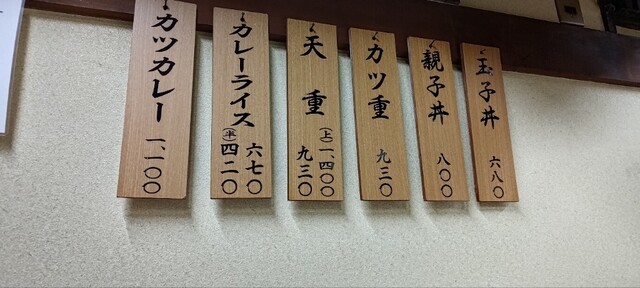 玉子丼 六八〇
親子丼 八〇〇
カツ重 九三〇
天重 (上)一、四〇〇
九三〇
カレーライス 六七〇
(半)四二〇
カツカレー 一、一〇〇